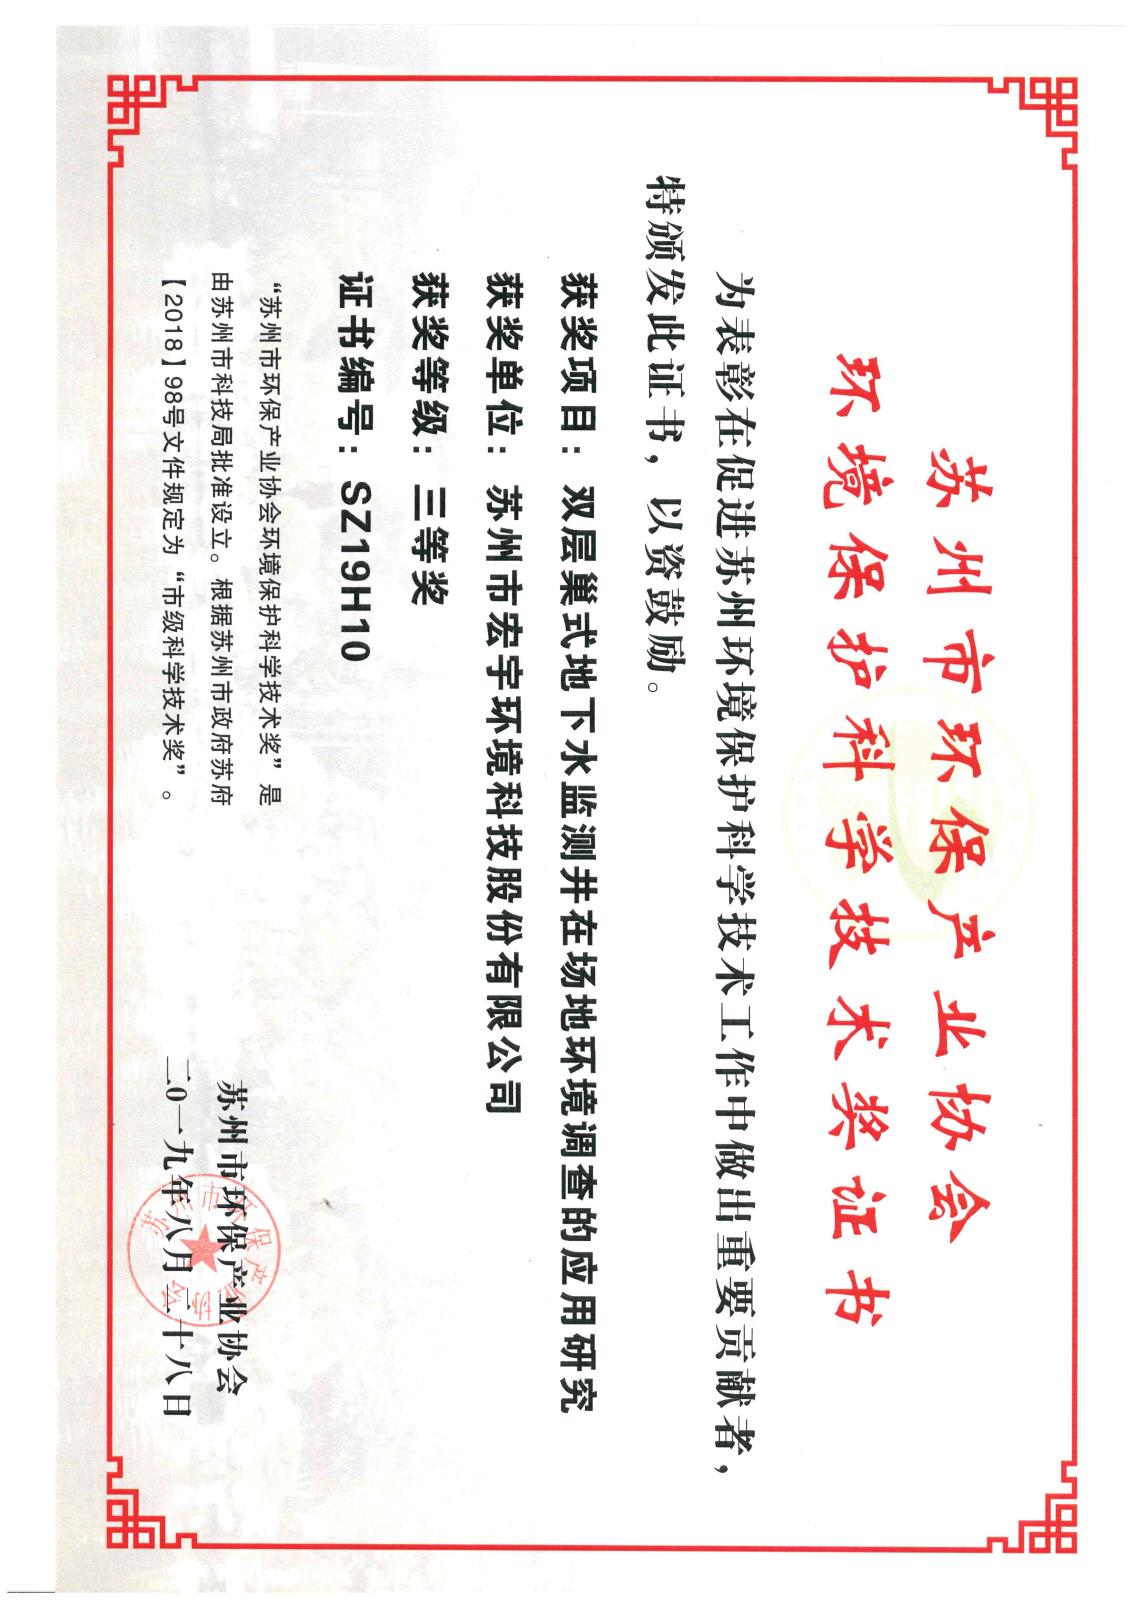 苏州市环保产业协会
环境保护科学技术奖证书
为表彰在促进苏州环境保护科学技术工作中做出重要贡献者，
特颁发此证书，以资鼓励。
获奖项目：双层巢式地下水监测井在场地环境调查的应用研究
获奖单位：苏州市宏宇环境科技股份有限公司
获奖等级：三等奖
证书编号：SZ19H10
“苏州市环保产业协会环境保护科学技术奖”是
由苏州市科技局批准设立。根据苏州市政府苏府
【2018】98号文件规定为“市级科学技术奖”。
苏州市环保产业协会
二〇一九年八月二十八日
苏州市环保产业协会